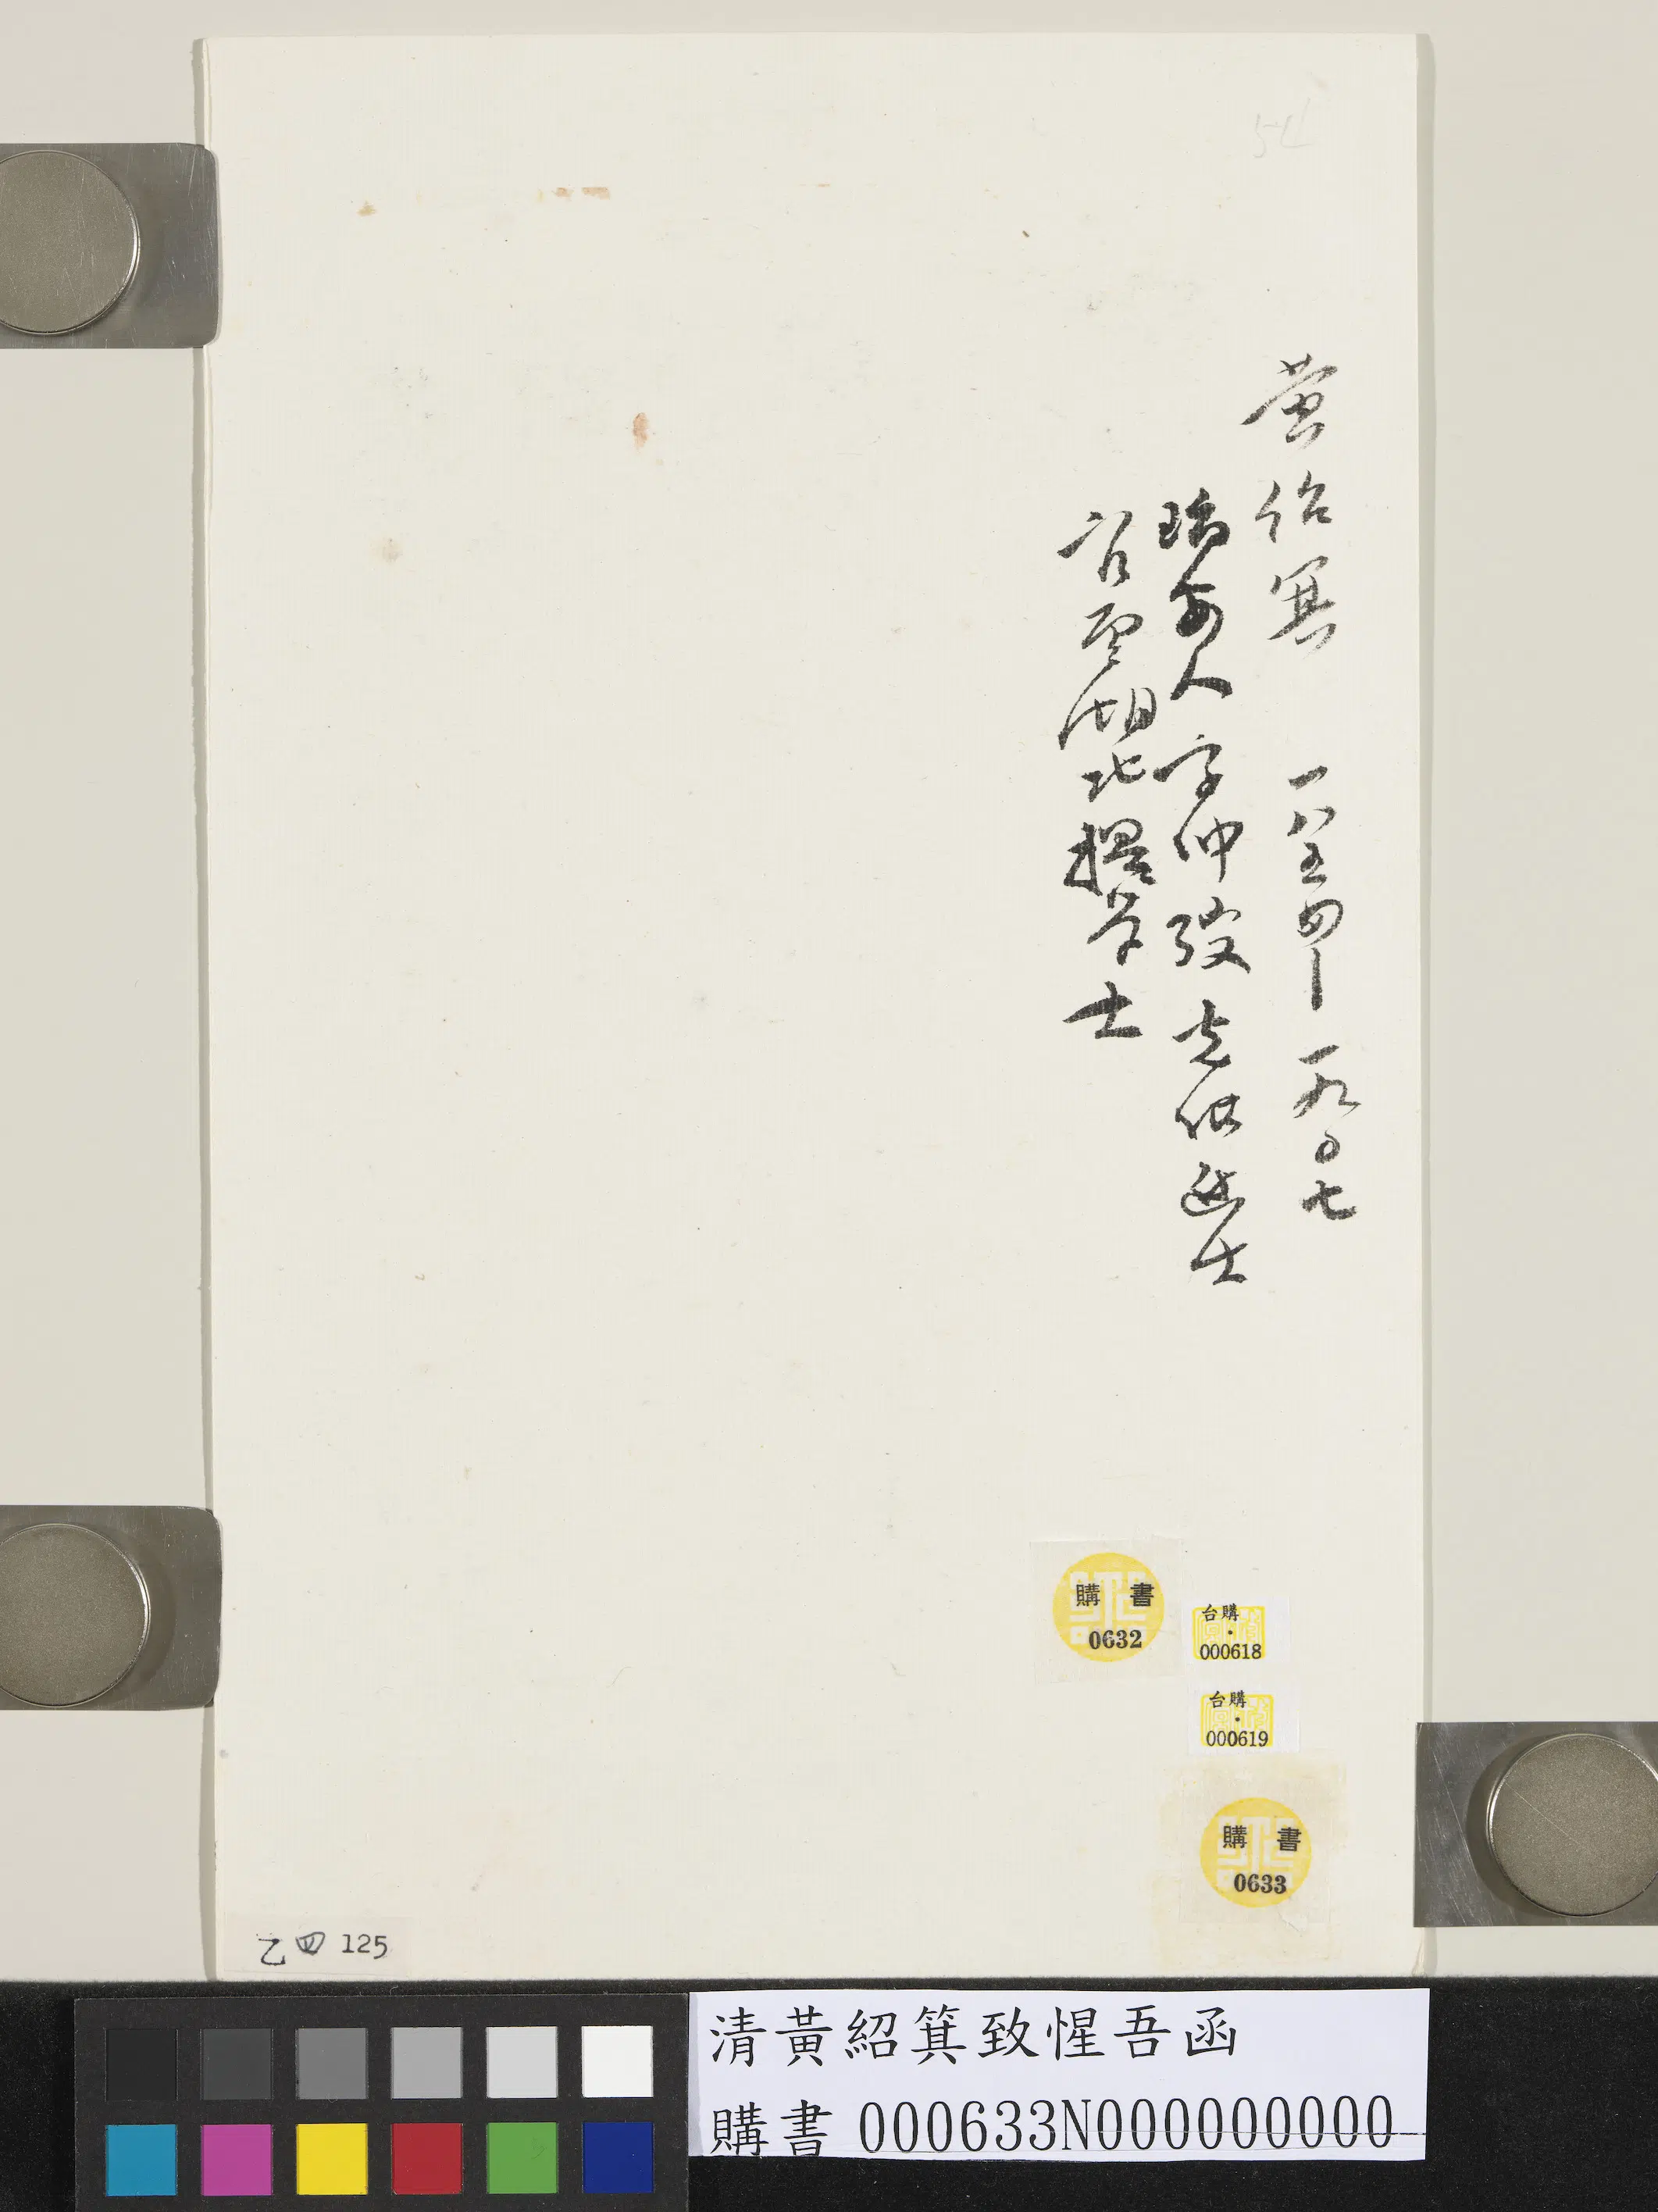 54
黃紹箕 一八五四—一九〇七
瑞安人 字仲弢 光緒進士
官至湖北提學士
購書
0632
台購
000618
台購
000619
購書
0633
乙四 125
清黃紹箕致惺吾函
購書 000633N000000000